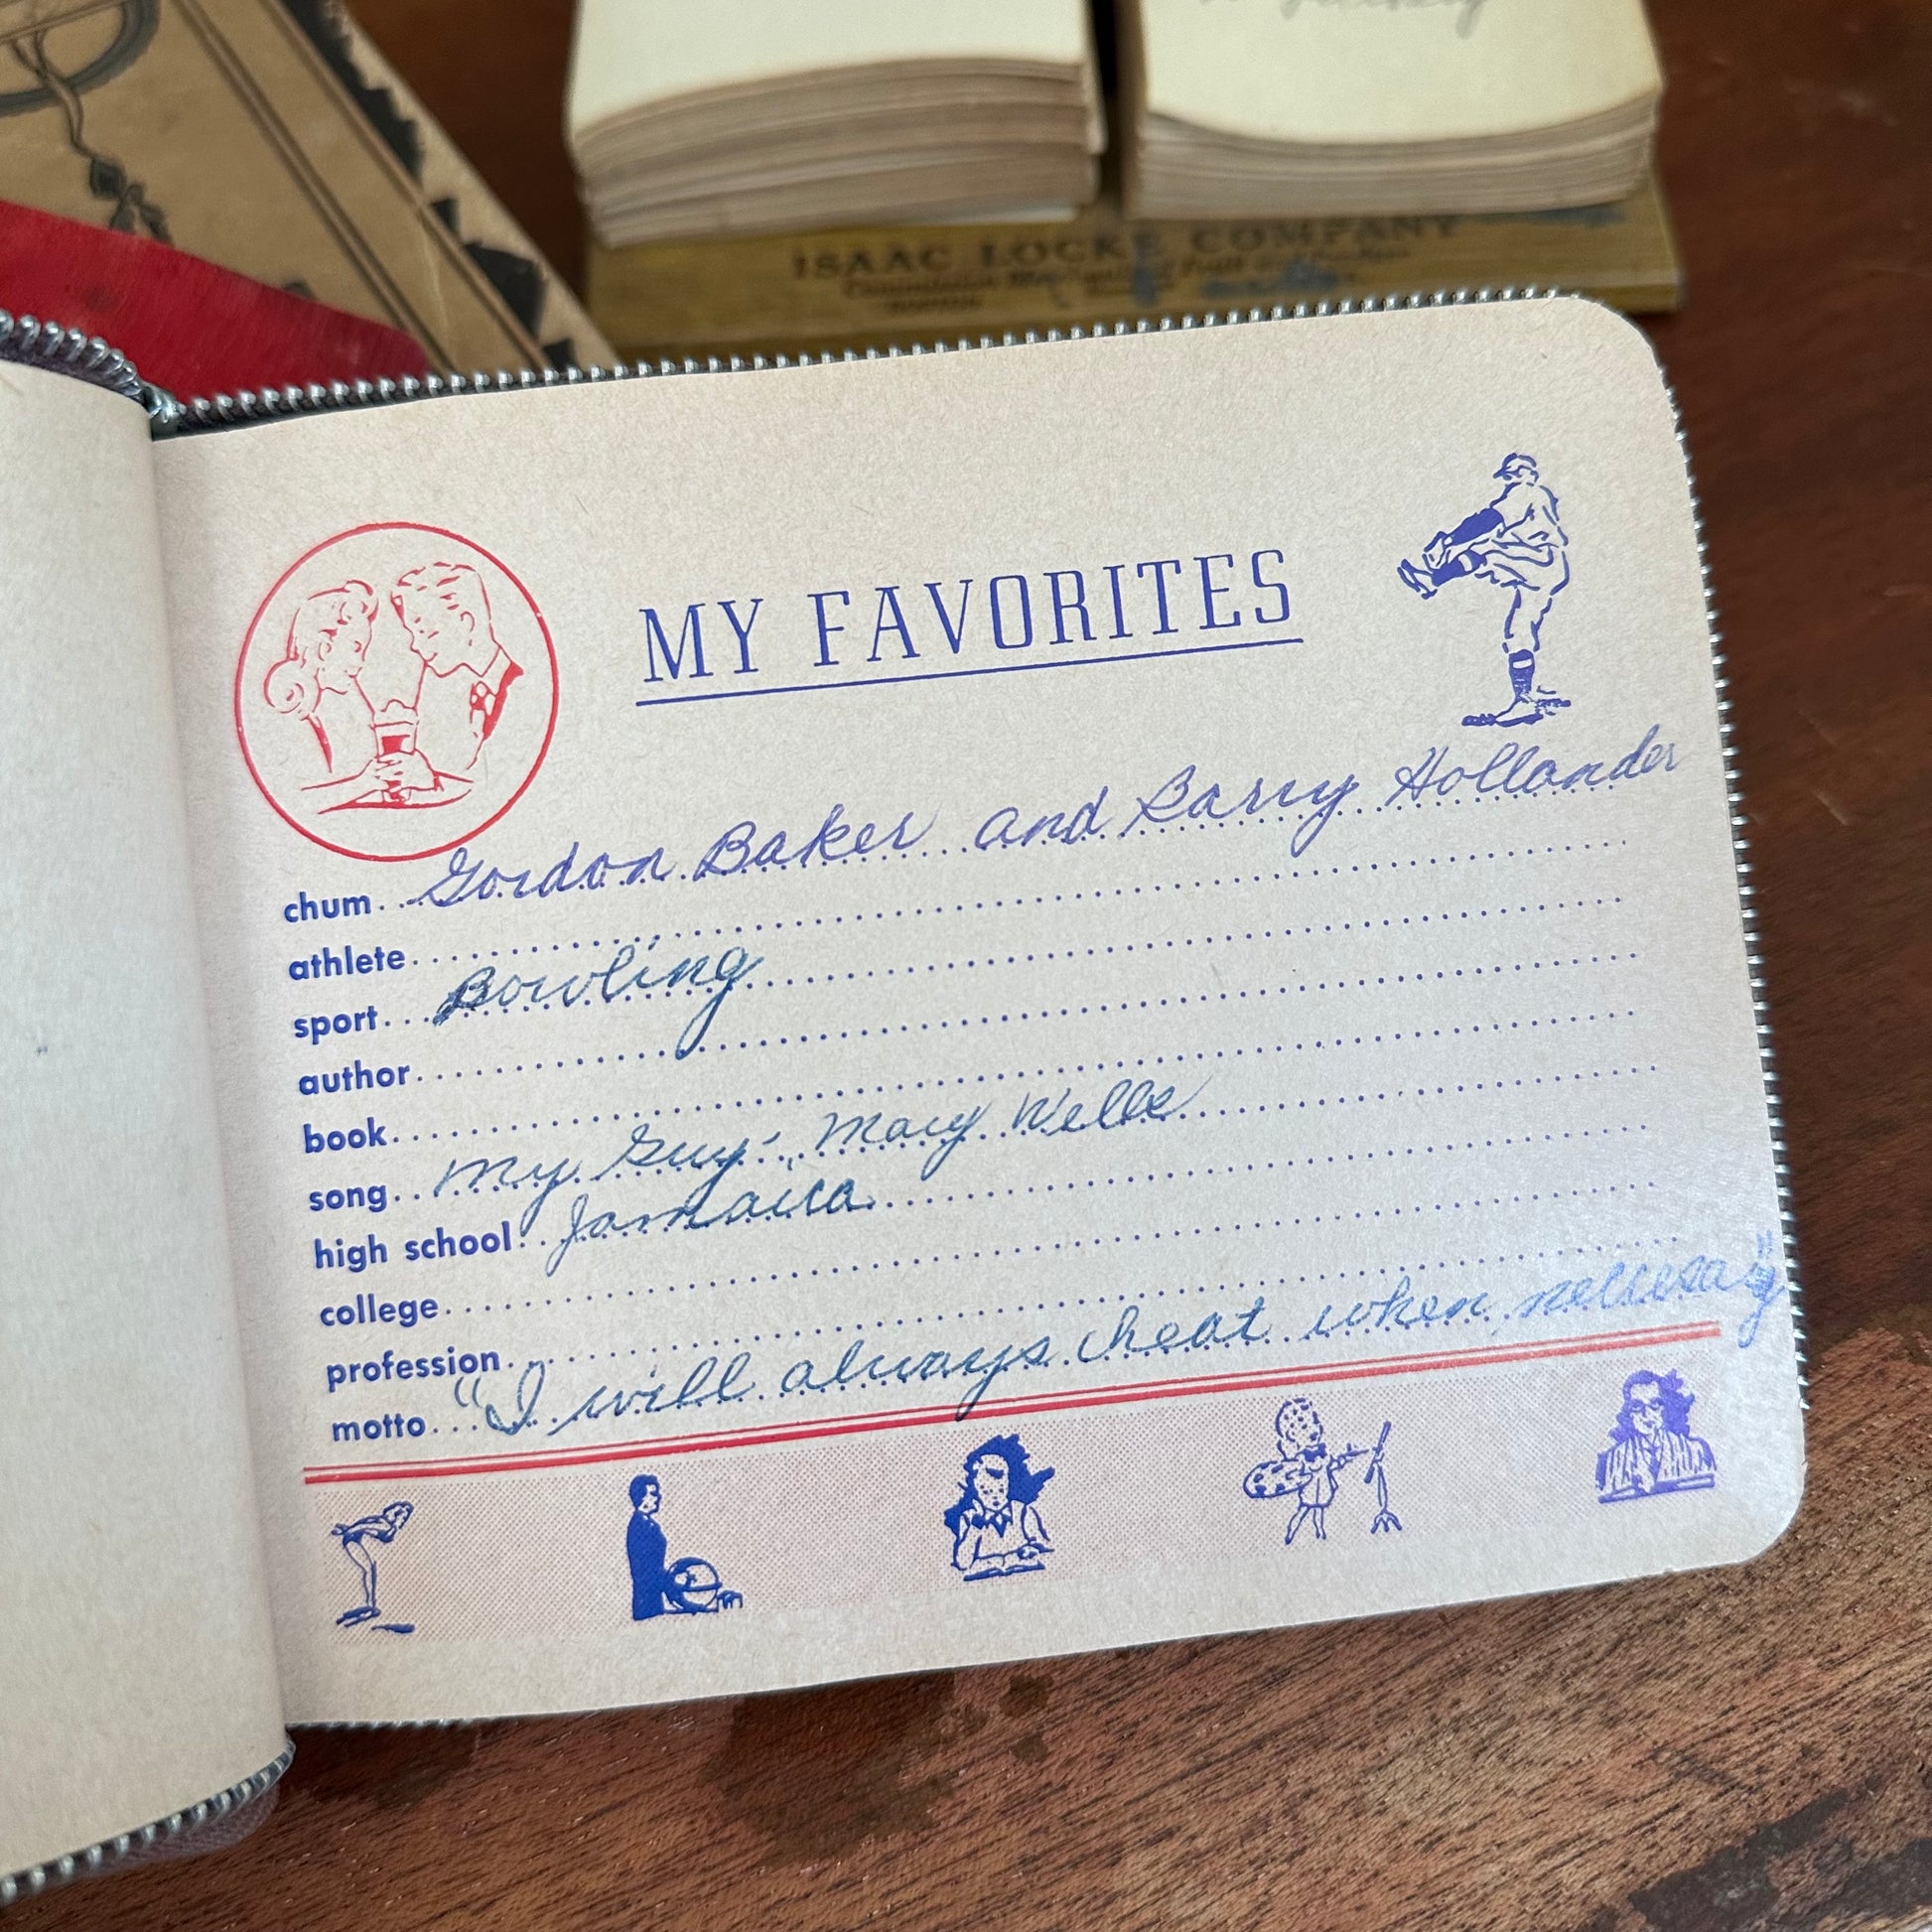 ISAAC LOCKE COMPANY
MY FAVORITES
chum Gordon Baker and Barry Hollander
athlete
sport Bowling
author
book
song My Guy - Mary Wells
high school Jamaica
college
profession
motto "I will always cheat when necessary"